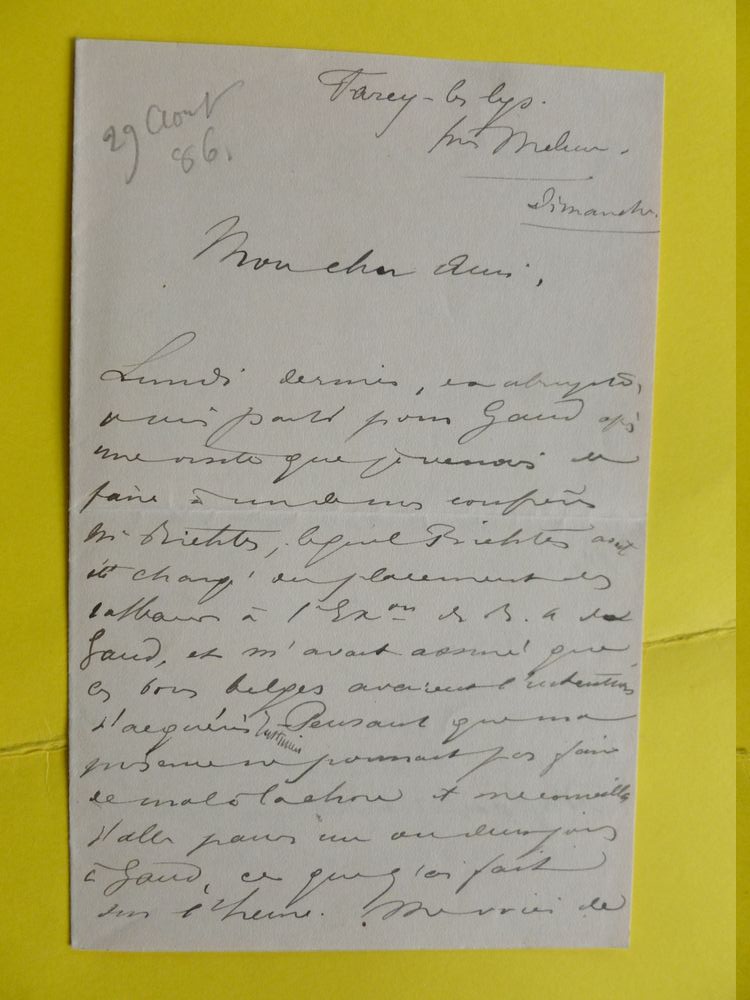 29 Aout
86.
Farcy-les lys.
près Melun.
Dimanche.
Mon cher ami,
Lundi dernier, ex abrupto,
suis parti pour Gand aps
une visite que je venais de
faire à un de mes confrères
Mr Richter, lequel Richter avait
été chargé du placement des
tableaux à l'Exon de B. A de
Gand, et m'avait assuré que
ces bons belges avaient l'intention
d'acquérir Pensant que ma
présence ne pourrait pas faire
de mal à la chose et me conseilla
d'aller passer un ou deux jours
à Gand, ce que j'ai fait
sur l'heure. Me voici de